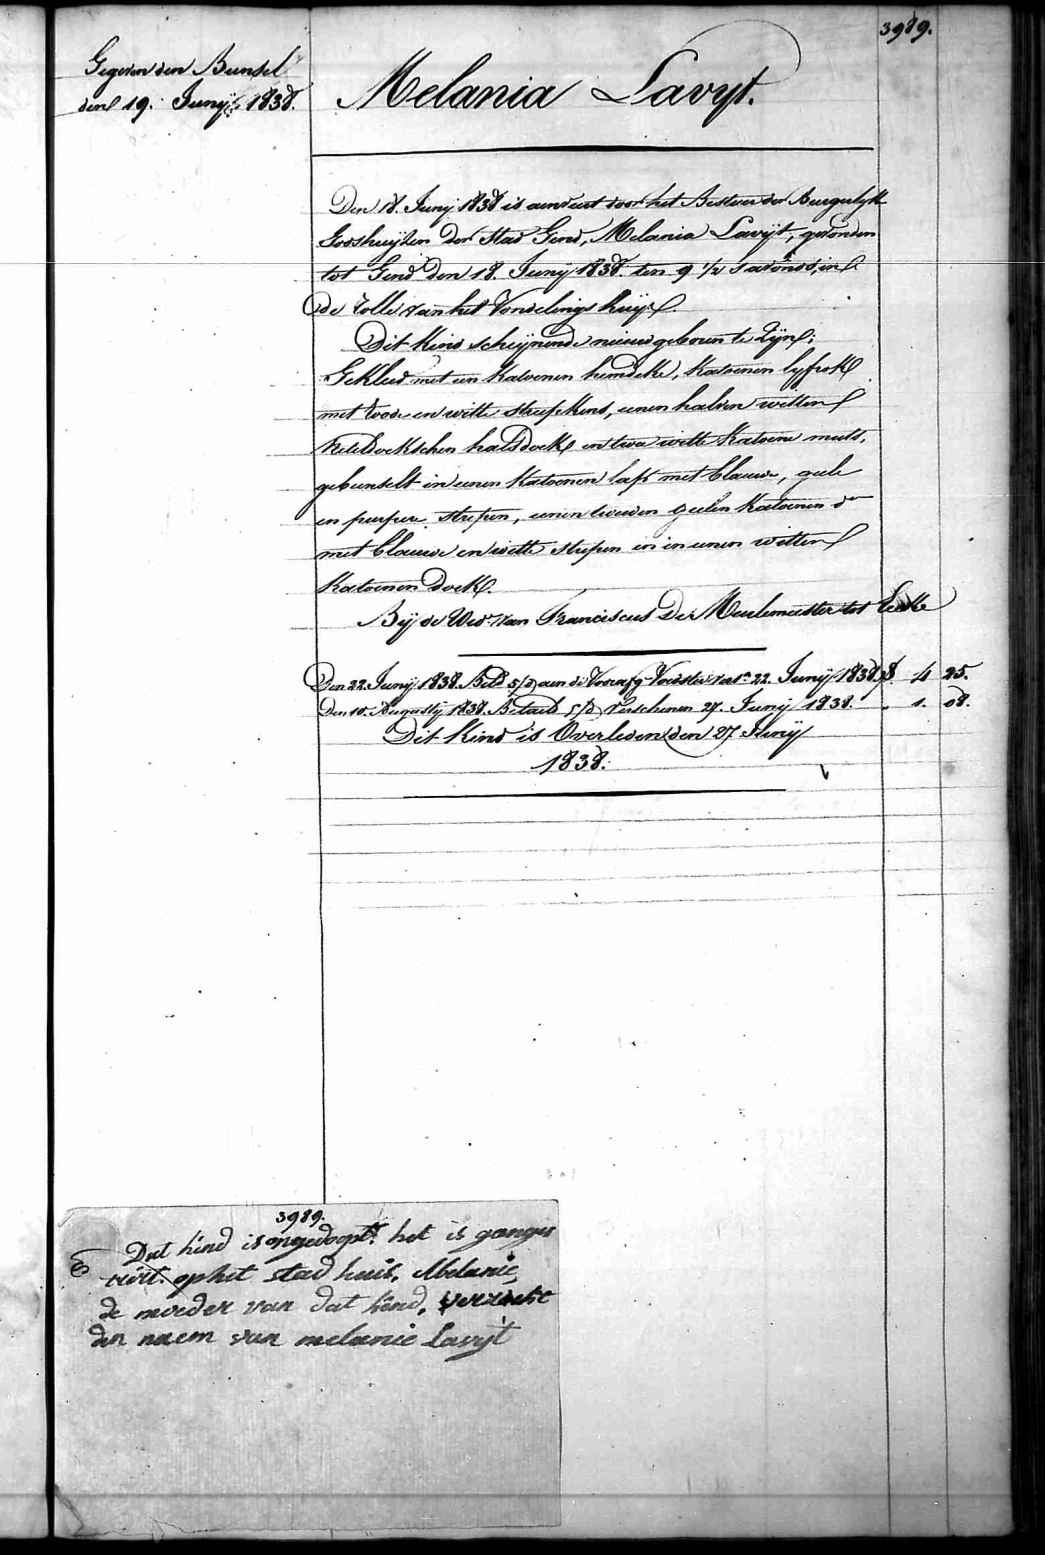 3989.
Gegeven den Bunsel
den 19. Junij 1838.
Melania Lavyt.
Den 18. Junij 1838 is aenveert door het Bestuer der Burgerlyk
Godshuijsen der Stad Gend, Melania Lavijt, gevonden
tot Gend den 18. Junij 1838. ten 9 1/2 s'avonds, in
de rolle van het Vondelings huijs.
Dit kind scheijnende nieuwgeboren te Zijn;
Gekleed met een Katoenen hemdeke, Katoenen lyfrok
met roode en witte streepkens, eenen halven witten
neteldoekschen halsdoek en twee witte Katoene muts,
gebunselt in eenen Katoenen lap met blauwe, geele
en purpere strepen, eenen tweeden geelen Katoenen do
met blauwe en witte strepen en in eenen witten
Katoenen doek.
Bij de Wed. van Franciscus De Meulemeester tot Eecke
Den 22. Junij 1838. Beta 5/d aen de Voorafg Voedster vers. 22. Junij 1838. 4 25.
Den 10. Augustij 1838. Betaeld 5/d Verschenen 27. Junij 1838. " 1. 08.
Dit Kind is Overleden den 27 Junij
1838.
3989.
Dat kind is ongedoopt. het is
op het stad huis. Melanie,
de moeder van dat kind, verzoekt
den naem van melanie Lavyt